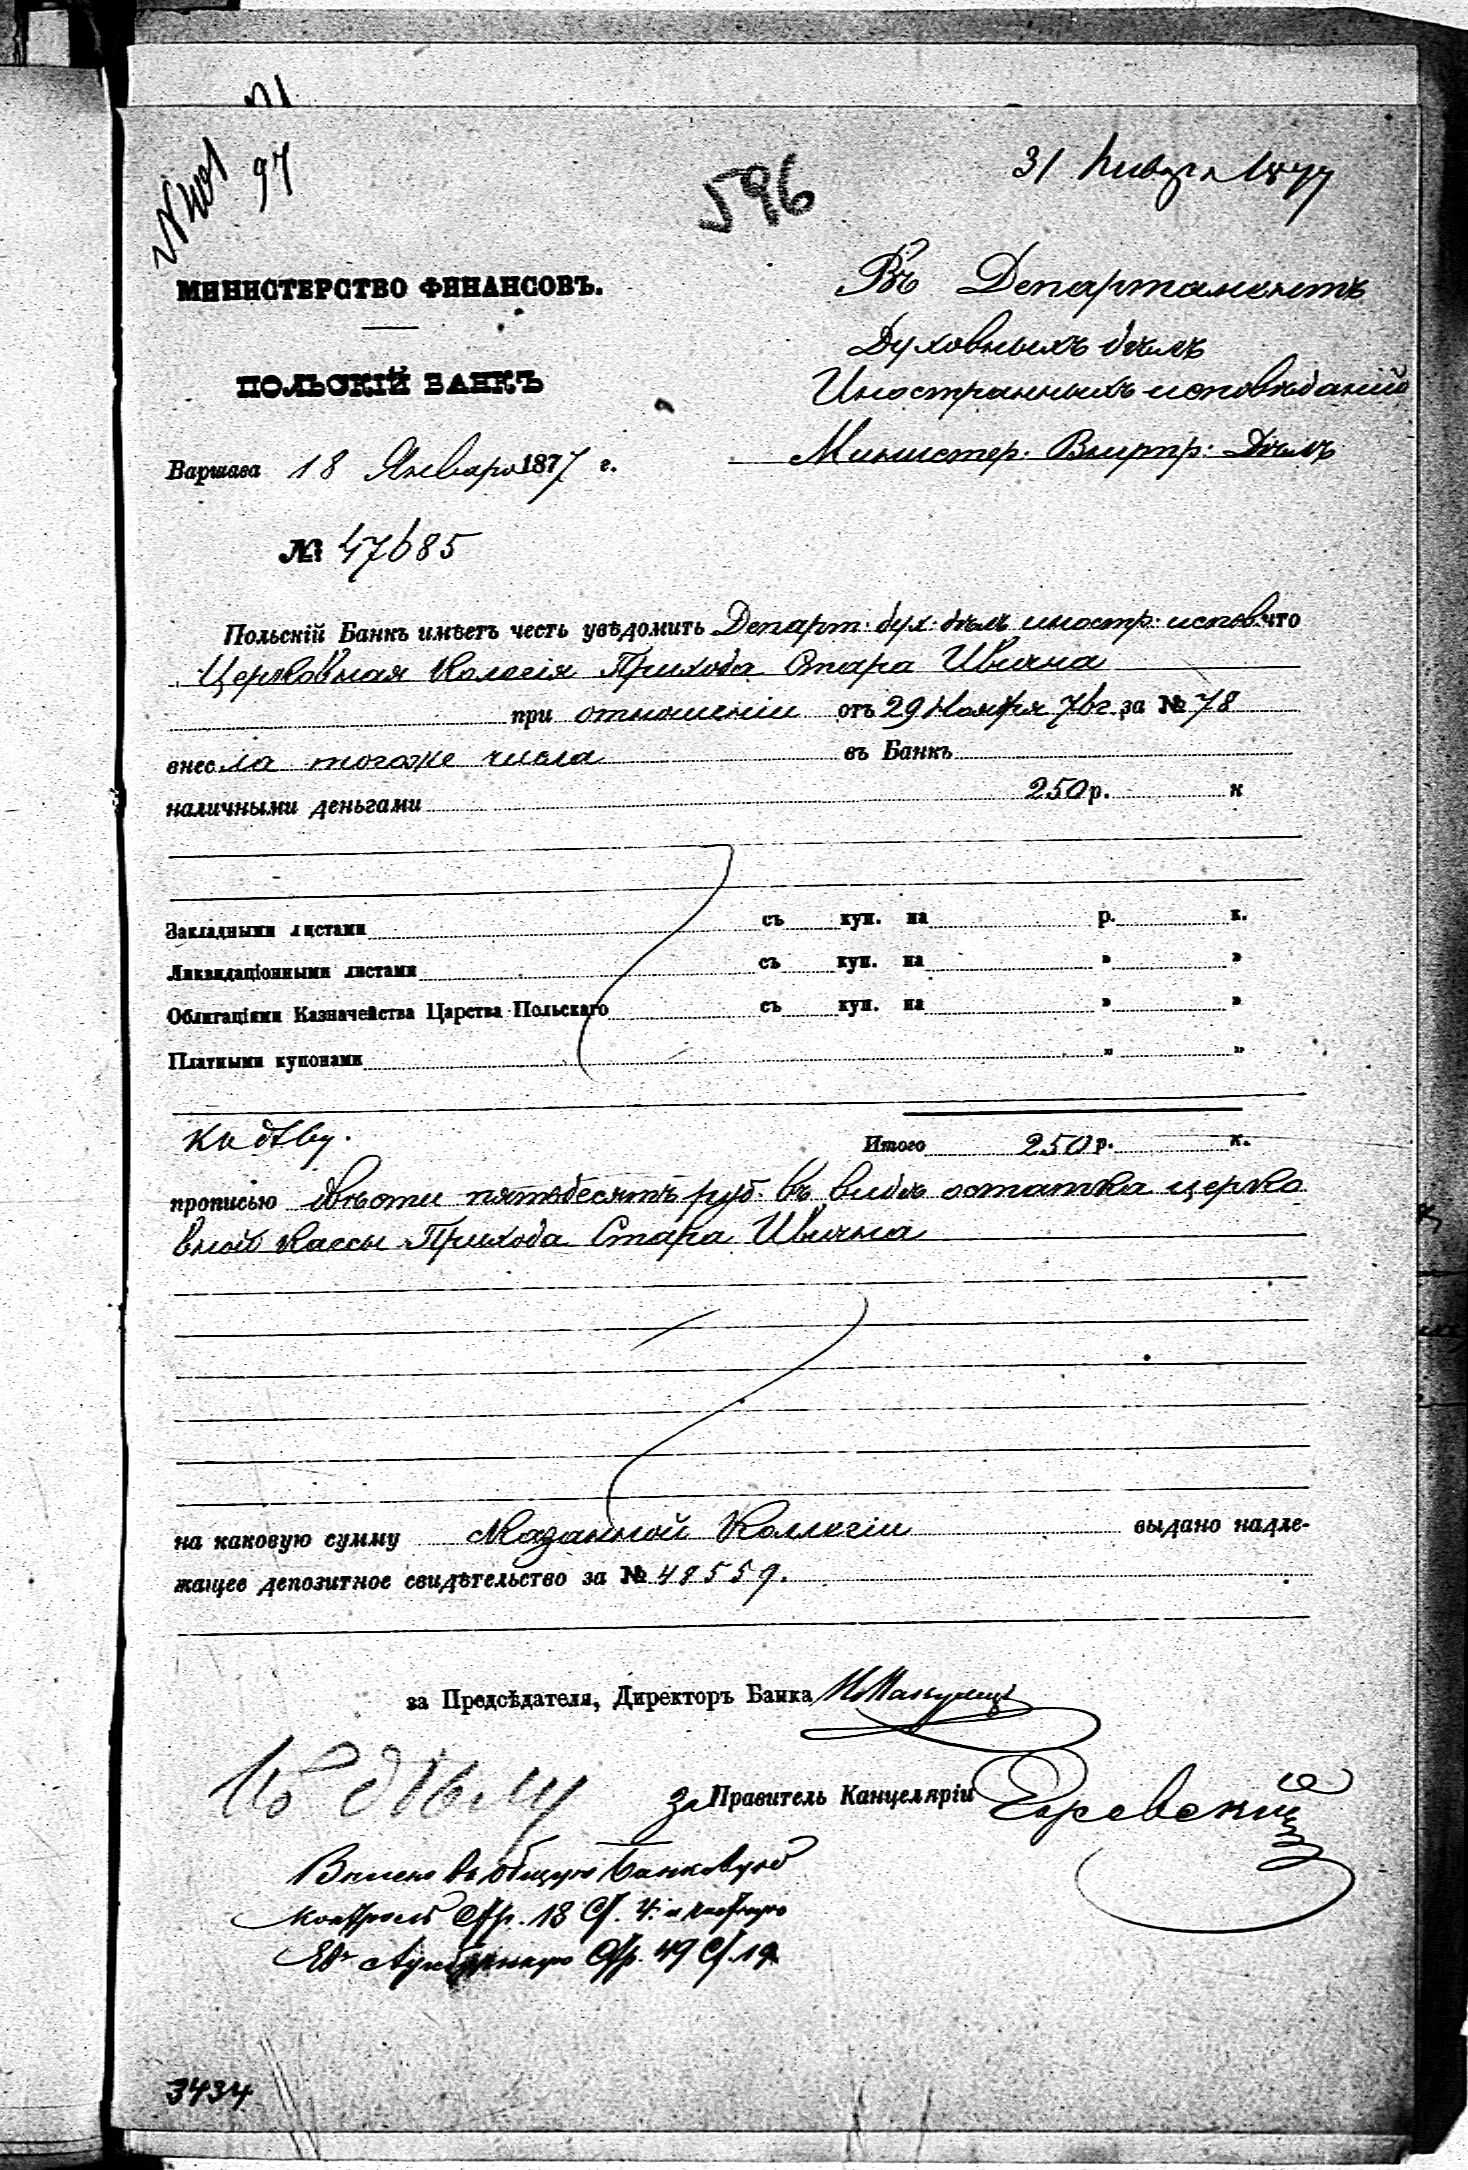 97
596
31 Января 1877
МИНИСТЕРСТВО ФИНАНСОВЪ.
ПОЛЬСКІЙ БАНКЪ
Варшава 18 Января 1877 г.
№ 47685
Въ Департаментъ
Духовныхъ дѣлъ
Иностранныхъ исповѣданій
Министер. Внутр. Дѣлъ
Польскій Банкъ имѣетъ честь увѣдомить Департ. дух. дѣлъ иностр. испов. что
Церковная Колегія Прихода Стара Ивична
при отношеніи отъ 29 Ноября 76 г. за № 78
внесла тогоже числа въ Банкъ
наличными деньгами 250 р. к
Закладными листами съ куп. на р. к.
Ликвидаціонными листами съ куп. на „ „
Облигаціями Казначейства Царства Польскаго съ куп. на „ „
Платными купонами „ „
Къ дѣлу.
Итого 250 р. к.
прописью двѣсти пятьдесятъ руб. въ видѣ остатка церко
вной кассы Прихода Стара Ивична
на каковую сумму сказанной Коллегіи выдано надле-
жащее депозитное свидѣтельство за № 48559.
за Предсѣдателя, Директоръ Банка
За Правитель Канцеляріи
Къ дѣлу
Внесено въ общую Банковую
контроль Стр. 18 Ст. 4. и частную
Ев. Аугсбургскую Стр. 49 Ст. 19
3434